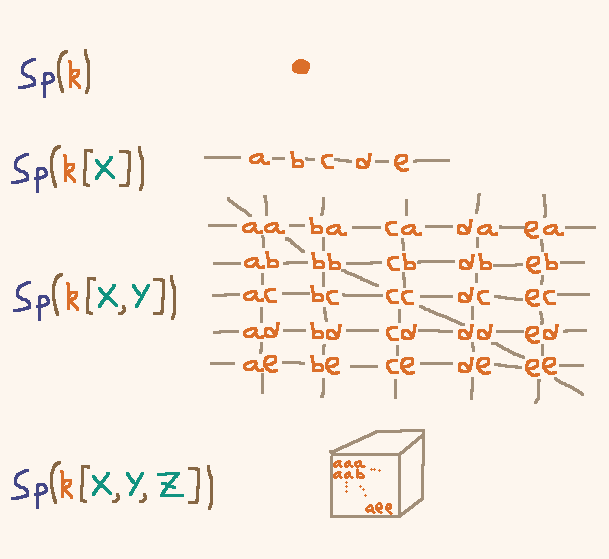 Sp(k)
Sp(k[X])
a b c d e
aa ba ca da ea
ab bb cb db eb
Sp(k[X,Y])
ac bc cc dc ec
ad bd cd dd ed
ae be ce de ee
Sp(k[X,Y,Z])
aaa ...
aab
aee